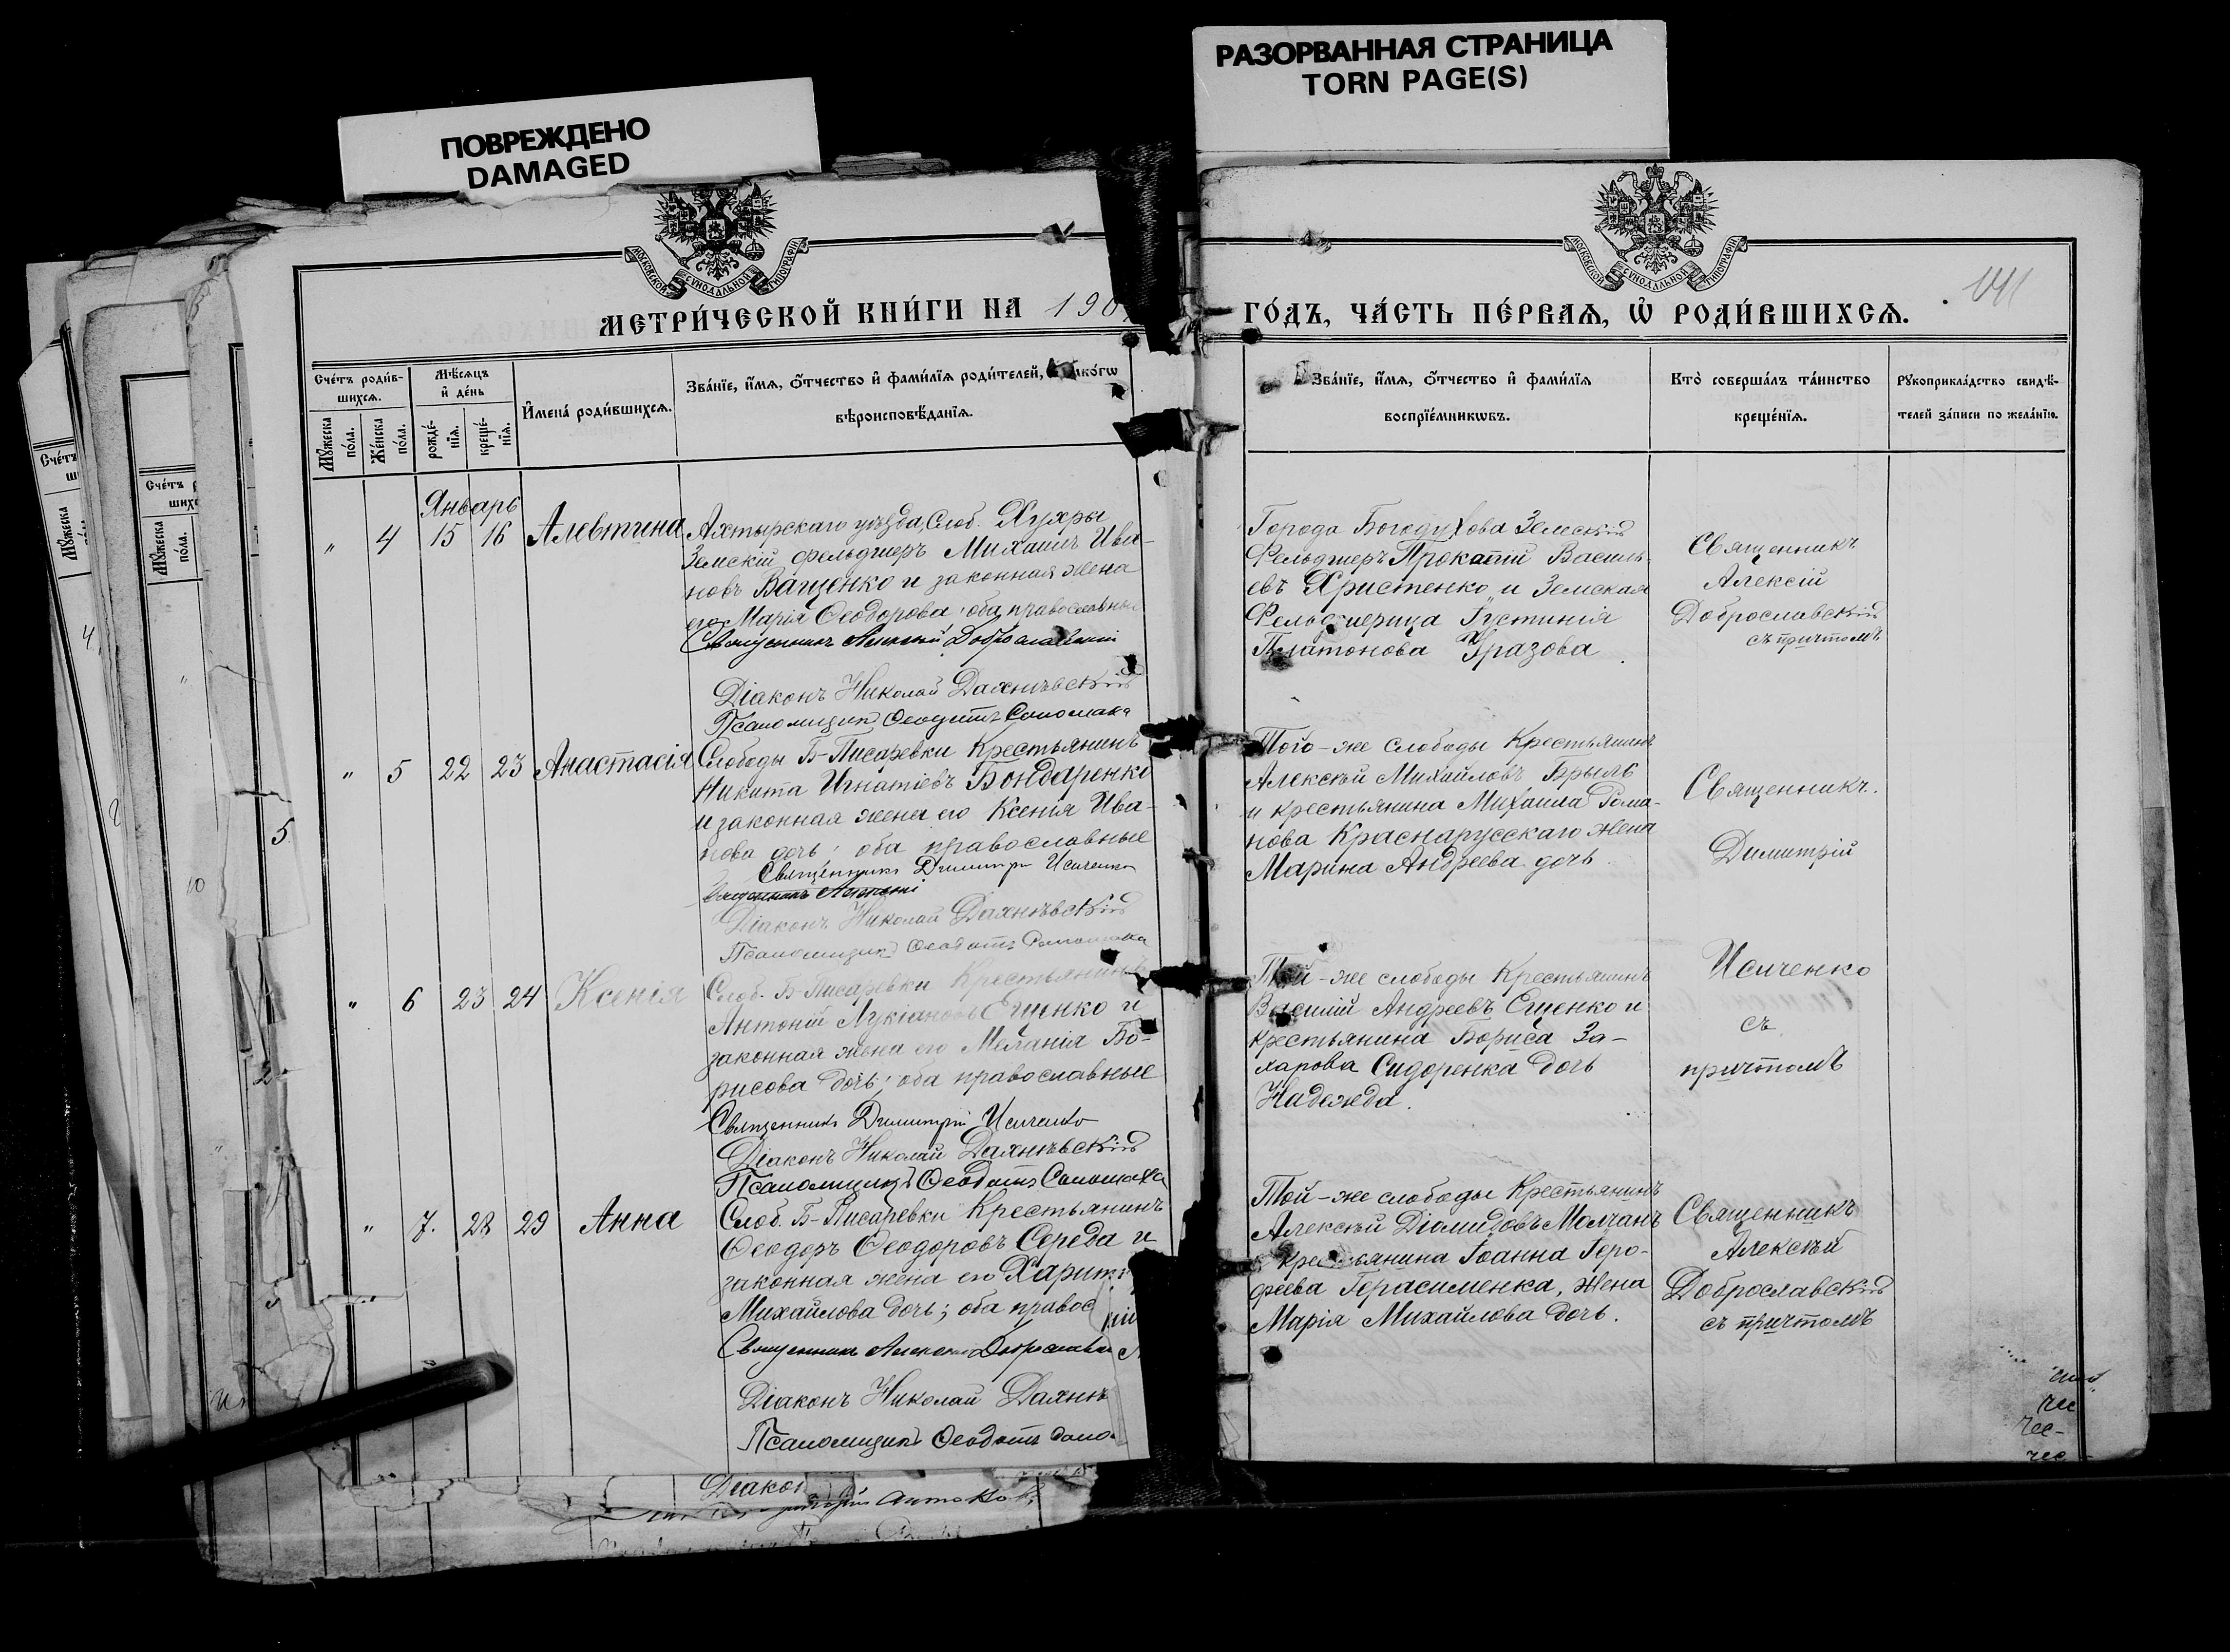 РАЗОРВАННАЯ СТРАНИЦА
TORN PAGE(S)
ПОВРЕЖДЕНО
DAMAGED
МОСКОВСКОЙ СѴНОДАЛЬНОЙ ТИПОГРАФІИ
МОСКОВСКОЙ СѴНОДАЛЬНОЙ ТИПОГРАФІИ
МЕТРИ́ЧЕСКОЙ КНИ́ГИ НА 190
ГО́ДЪ, ЧА́СТЬ ПЕ́РВАѦ, Ѡ҆ РОДИ́ВШИХСѦ.
Сче́тъ роди́в-
шихсѧ.
Мꙋ́жеска
по́ла.
Же́нска
по́ла.
Мѣ́сѧцъ
и҆ де́нь
рожде́-
нїѧ.
креще́-
нїѧ.
И҆мена̀ роди́вшихсѧ.
Зва́нїе, и҆́мѧ, ѻ҆́тчество и҆ фами́лїѧ роди́телей,
вѣроисповѣ́данїѧ.
Зва́нїе, и҆́мѧ, ѻ҆́тчество и҆ фами́лїѧ
воспрїе́мникѡвъ.
Кто̀ соверша́лъ та́инство
креще́нїѧ.
Рꙋкоприкла́дство свидѣ́-
телей за́писи по жела́нїю.
Январь
" 4 15 16 Алевтина
Ахтырскаго уѣзда Слоб. Хухры
Земскій фельдшеръ Михаилъ Ива-
новъ Ващенко и законная жена
его Марія Ѳеодорова; оба православные
Священникъ Алексѣй Доброславскій
Діаконъ Николай
Псаломщикъ Ѳеодотъ Соломаха
Города Богодухова Земскій
Фельдшеръ Прокопій Василь-
евъ Христенко и Земская
Фельдшерица Іустинія
Платонова Уразова
Священникъ
Алексій
Доброславскій
съ причтомъ
" 5 22 23 Анастасія
Слободы Б-Писаревки Крестьянинъ
Никита Игнатіевъ Бондаренко
и законная жена его Ксенія Ива-
нова дочь; оба православные
Священникъ Димитрій Исиченко
Священникъ Алексѣй
Діаконъ Николай
Псаломщикъ Ѳеодотъ Соломаха
Того-же слободы Крестьянинъ
Алексѣй Михайловъ Брыль
и крестьянина Михаила Рома-
нова Краснарусскаго жена
Марина Андреева дочь.
Священникъ.
Димитрій
Исиченко
съ
причтомъ
" 6 23 24 Ксенія
Слоб. Б-Писаревки Крестьянинъ
Антоній Лукіановъ Ещенко и
законная жена его Меланія Бо-
рисова дочь; оба православные
Священникъ Димитрій Исиченко
Діаконъ Николай
Псаломщикъ Ѳеодотъ Соломаха
Той-же слободы Крестьянинъ
Василій Андреевъ Ещенко и
крестьянина Бориса За-
харова Сидоренка дочь
Надежда.
" 7. 28 29 Анна
Слоб. Б-Писаревки Крестьянинъ
Ѳеодоръ Ѳеодоровъ Середа и
законная жена его Харит
Михайлова дочь; оба правос
Священникъ Алексѣй Доброслав
Діаконъ Николай
Псаломщикъ Ѳеодотъ Соло
Той-же слободы Крестьянинъ
Алексѣй Діомидовъ Молчанъ
и крестьянина Іоанна Іеро-
феева Герасименка, жена
Марія Михайлова дочь.
Священникъ
Алексѣй
Доброславскій
съ причтомъ
Діакон